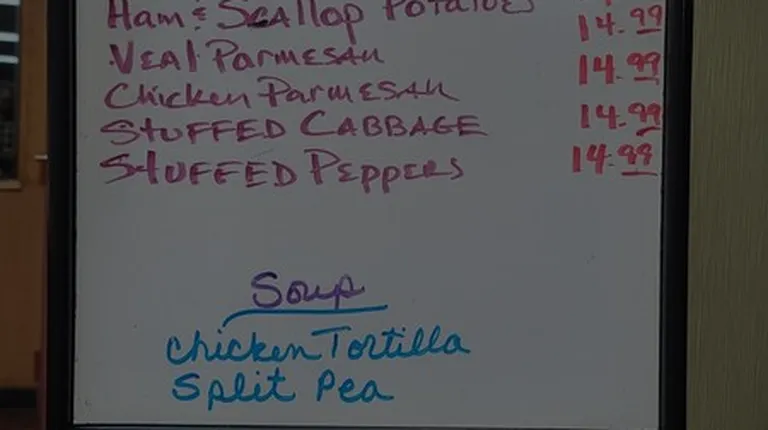 Ham & Scallop Potatoes
Veal Parmesan 14.99
Chicken Parmesan 14.99
STUFFED CABBAGE 14.99
STUFFED PEPPERS 14.99
Soup
Chicken Tortilla
Split Pea